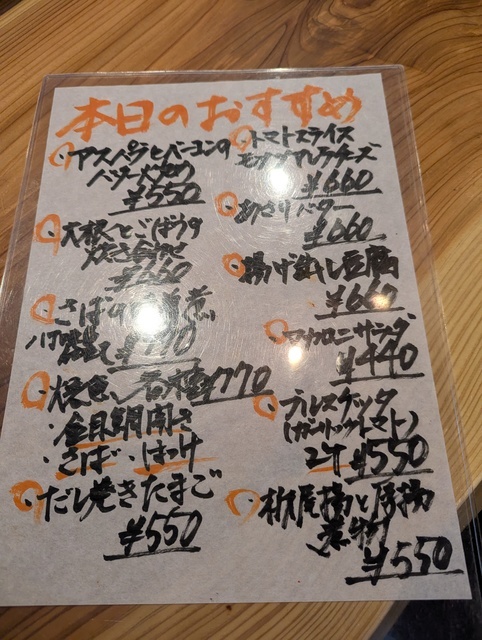 本日のおすすめ
・アスパラとベーコンの
バターソテー
¥550
大根とごぼうの
炊き合わせ
¥660
さばの 煮
八丁味噌
¥770
焼魚、各種¥770
・金目鯛開き
・さば ・ほっけ
だし焼きたまご
¥550
・トマトスライス
モッツァレラチーズ
¥660
あさりバター
¥660
揚げ出し豆腐
¥660
マカロニサラダ
¥440
ブルスケッタ
(ガーリックトマト)
2ケ ¥550
栃尾揚と厚揚
煮物
¥550